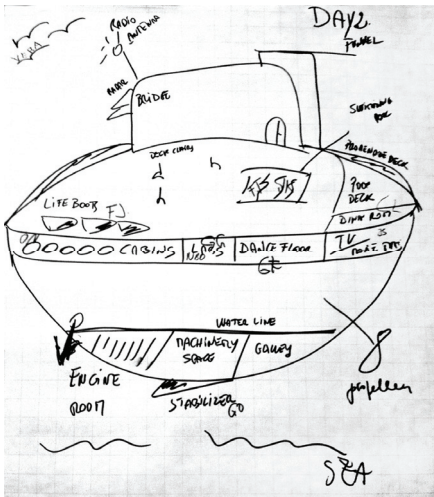 DAY 2.
RADIO
ANTENNA
FUNNEL
RADAR
BRIDGE
SWIMMING
POOL
PROMENADE DECK
DECK CHAIRS
POOP
DECK
LIFE BOATS
CABINS
DANCE FLOOR
TV
WATER LINE
MACHINERY
SPACE
GALLEY
ENGINE
ROOM
STABILIZER
propeller
SEA